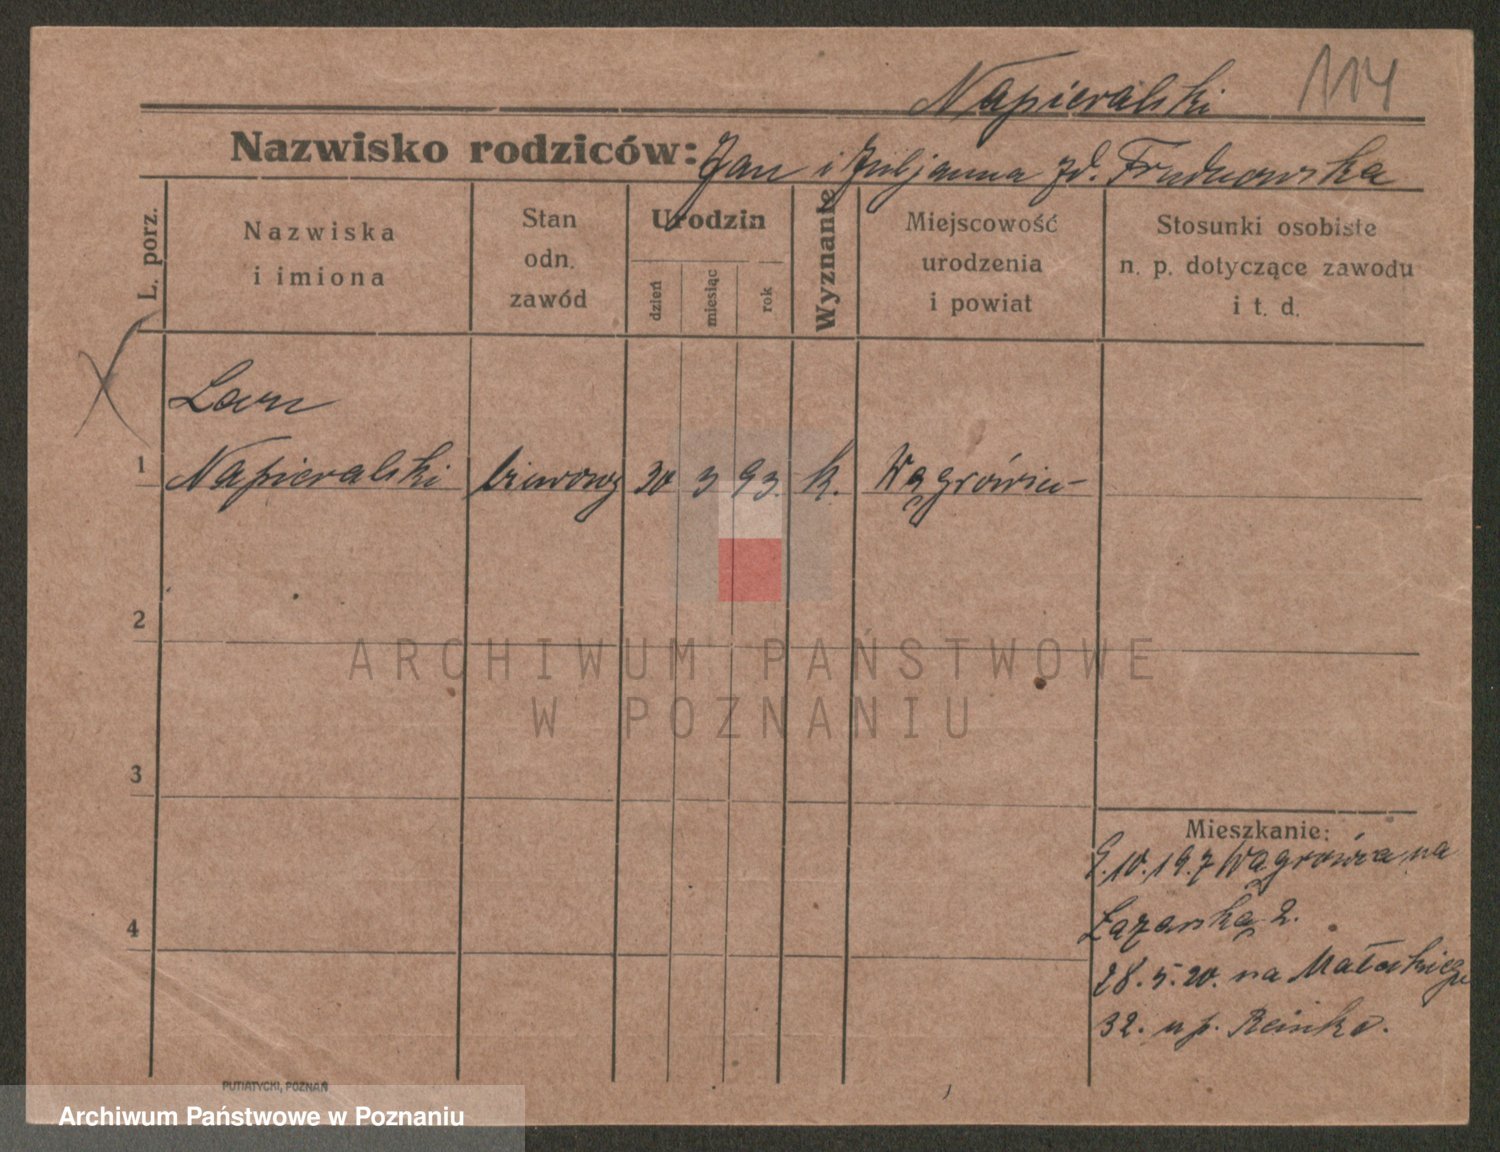 Napieralski 114
Nazwisko rodziców: Jan i Juljanna zd.
L. porz.
Nazwiska
i imiona
Stan
odn.
zawód
Urodzin
dzień
miesiąc
rok
Wyznanie
Miejscowość
urodzenia
i powiat
Stosunki osobiste
n. p. dotyczące zawodu
i t. d.
1 Napieralski 30 3 93. k. Wągrówiec
2
ARCHIWUM PAŃSTWOWE
W POZNANIU
3
Mieszkanie:
9.10.19. z Wągrówca na
Łazarską 2.
4
28.5.20. na Małeckiego
32. u p. Reinke.
PUTIATYCKI, POZNAŃ
Archiwum Państwowe w Poznaniu